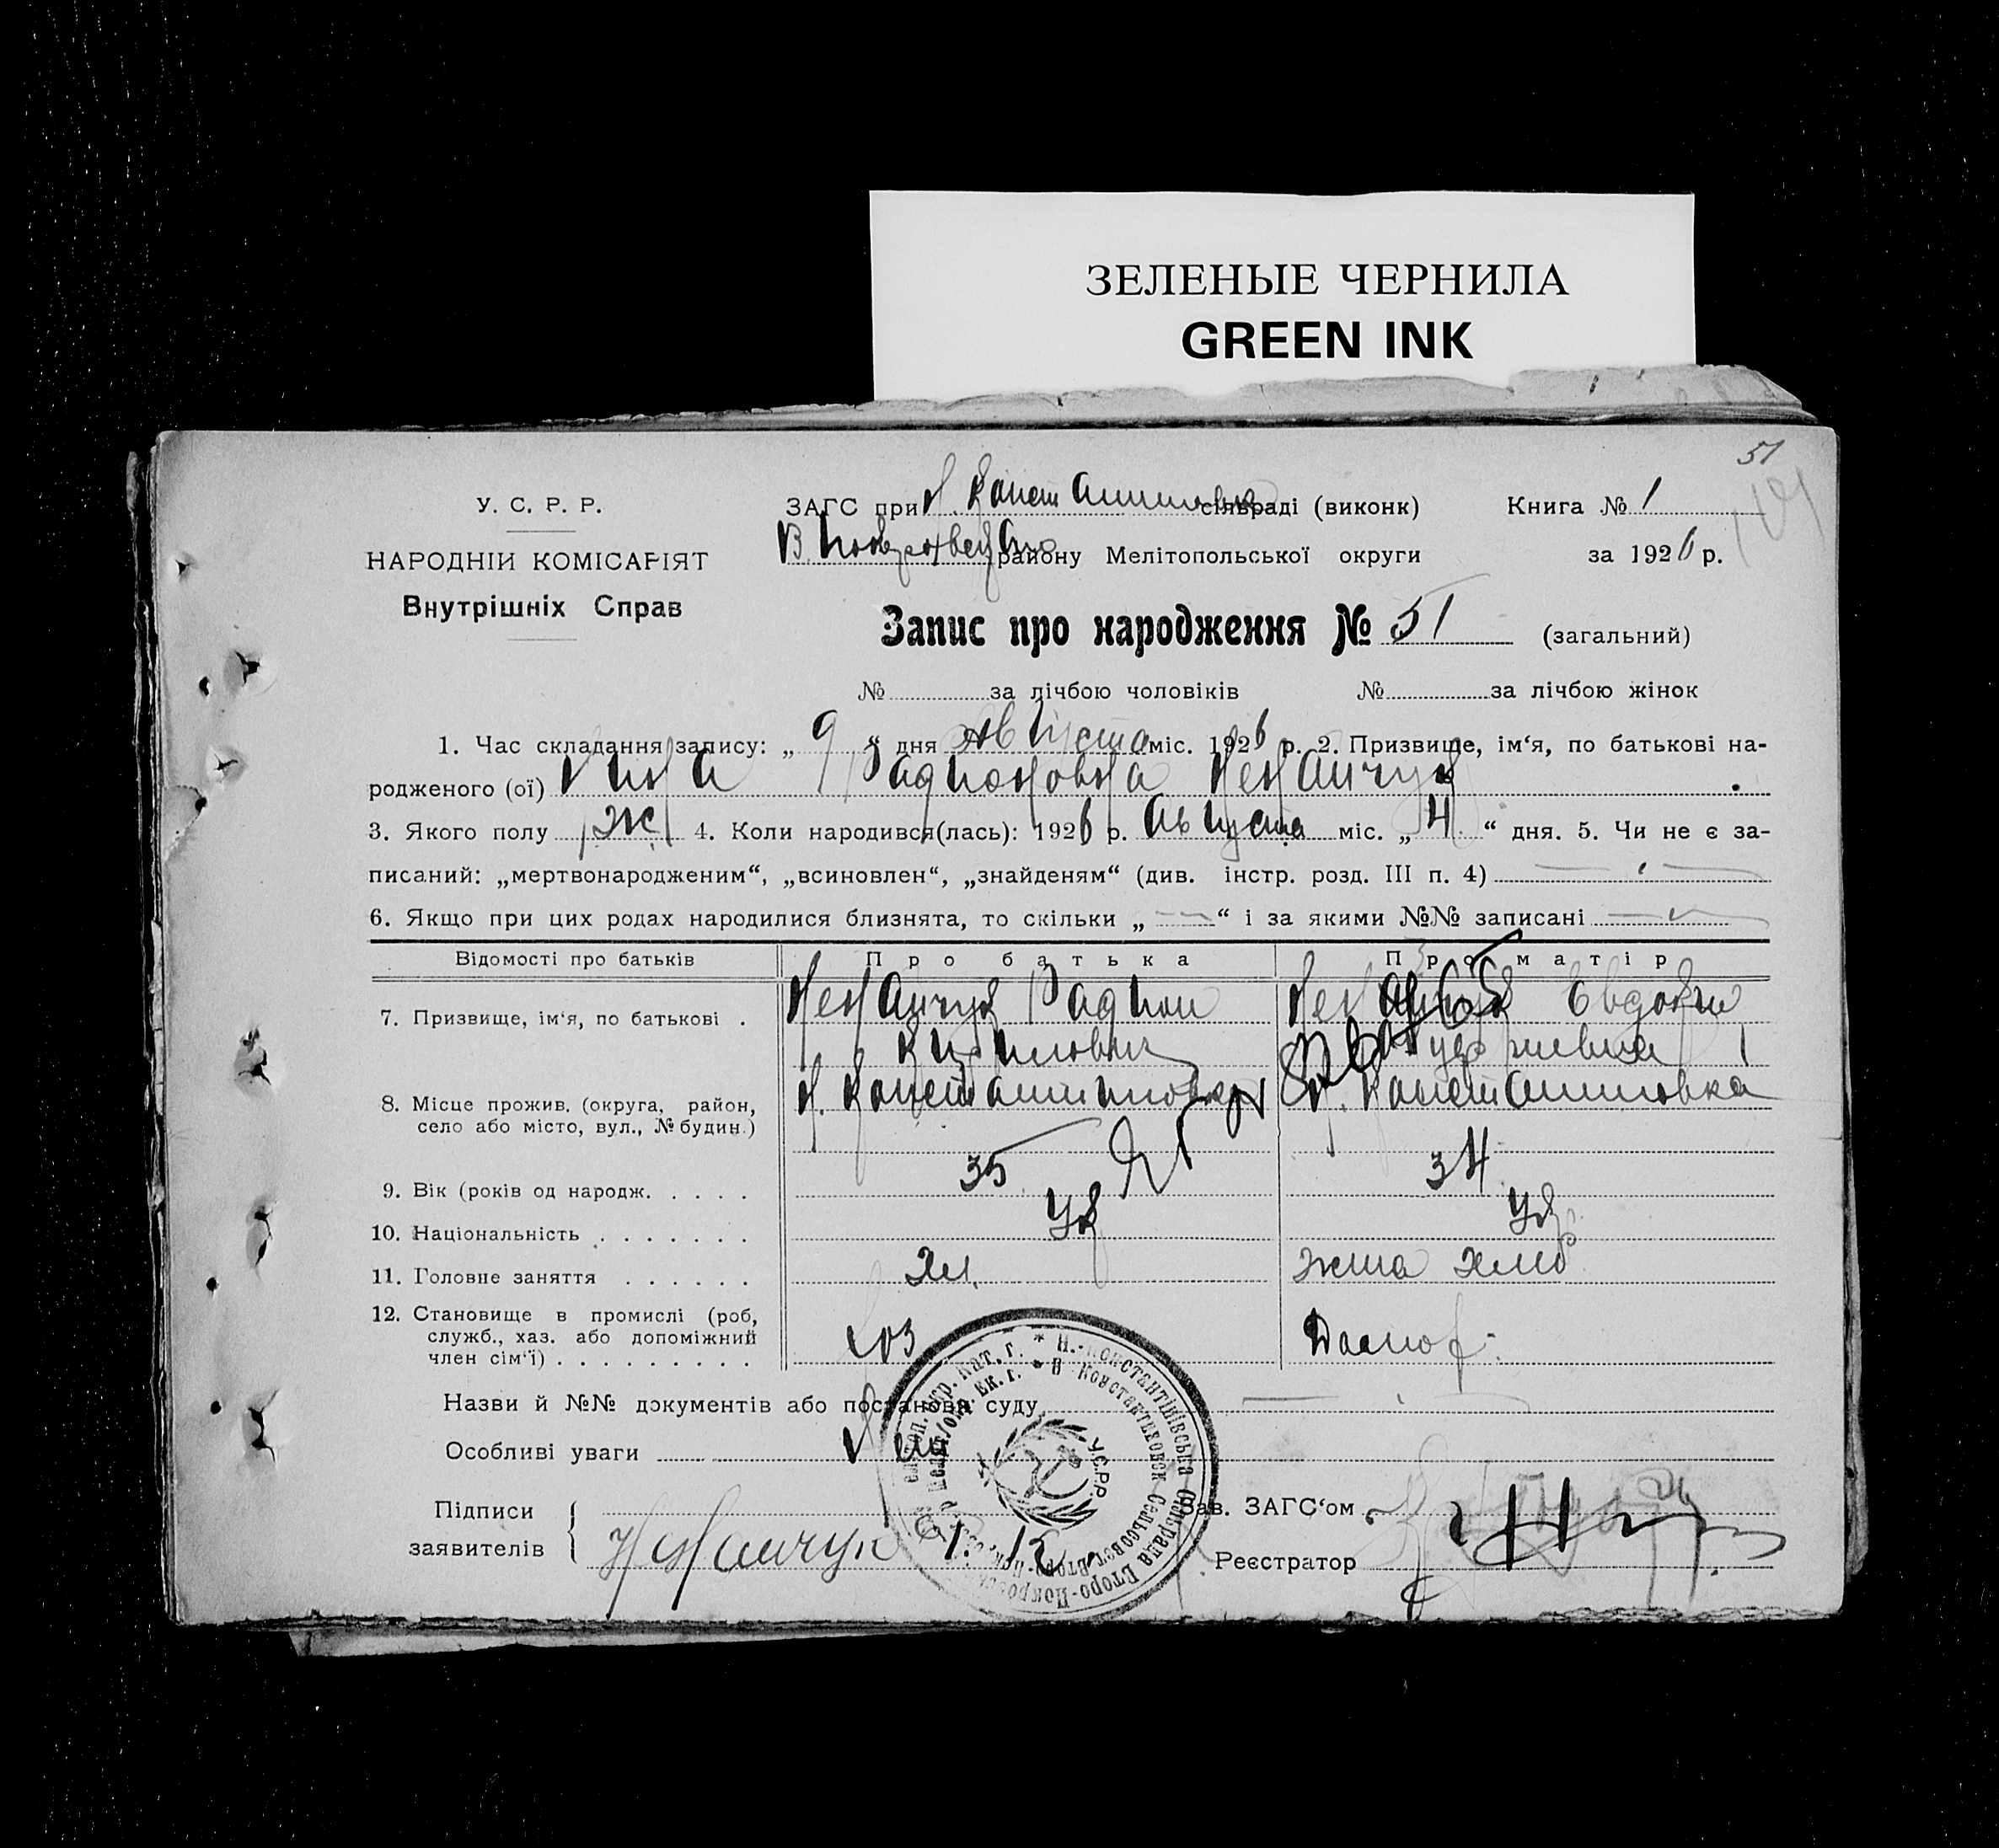 ЗЕЛЕНЫЕ ЧЕРНИЛА
GREEN INK
51
У. С. Р. Р.
ЗАГС при Н. Констаншиновка сільраді (виконк) Книга № 1
НАРОДНІЙ КОМІСАРІЯТ
району Мелітопольської округи за 1926 р.
Внутрішніх Справ
Запис про народження № 51 (загальний)
№ за лічбою чоловіків № за лічбою жінок
1. Час складання запису: „ 9 “ дня Августа міс. 1926 р. 2. Призвище, ім‘я, по батькові на-
родженого (ої) Нина Радионовна
3. Якого полу ж 4. Коли народився(лась): 1926 р. Августа міс. „ 4 “ дня. 5. Чи не є за-
писаний: „мертвонародженим“, „всиновлен“, „знайденям“ (див. інстр. розд. III п. 4)
6. Якщо при цих родах народилися близнята, то скільки „ “ і за якими №№ записані
Відомості про батьків Про батька Про матір
7. Призвище, ім‘я, по батькові . Радион Евдокия
Кирилович
8. Місце прожив. (округа, район, Н. Константиновка Н. Константиновка
село або місто, вул., № будин.)
9. Вік (років од народж. . . . . 35 34
10. Національність . . . . . . . Ук Ук
11. Головне заняття . . . . . . Хл. жена хлеб
12. Становище в промислі (роб,
служб., хаз. або допоміжний
член сім‘ї) . . . . . . . . . хоз
Назви й №№ документів або постанова суду
Особливі уваги Нет
Підписи
заявителів
Зав. ЗАГС‘ом
Реєстратор
У.С.Р.Р.